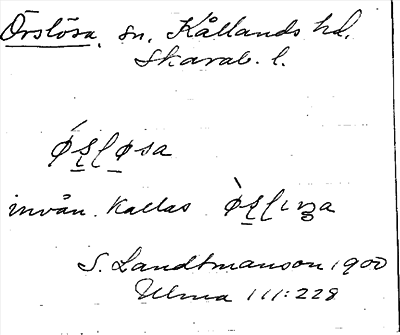 Örslösa, sn. Kållands hd.
Skarab. l.
invån. kallas
S. Landtmanson 1900
Ulma 111:228